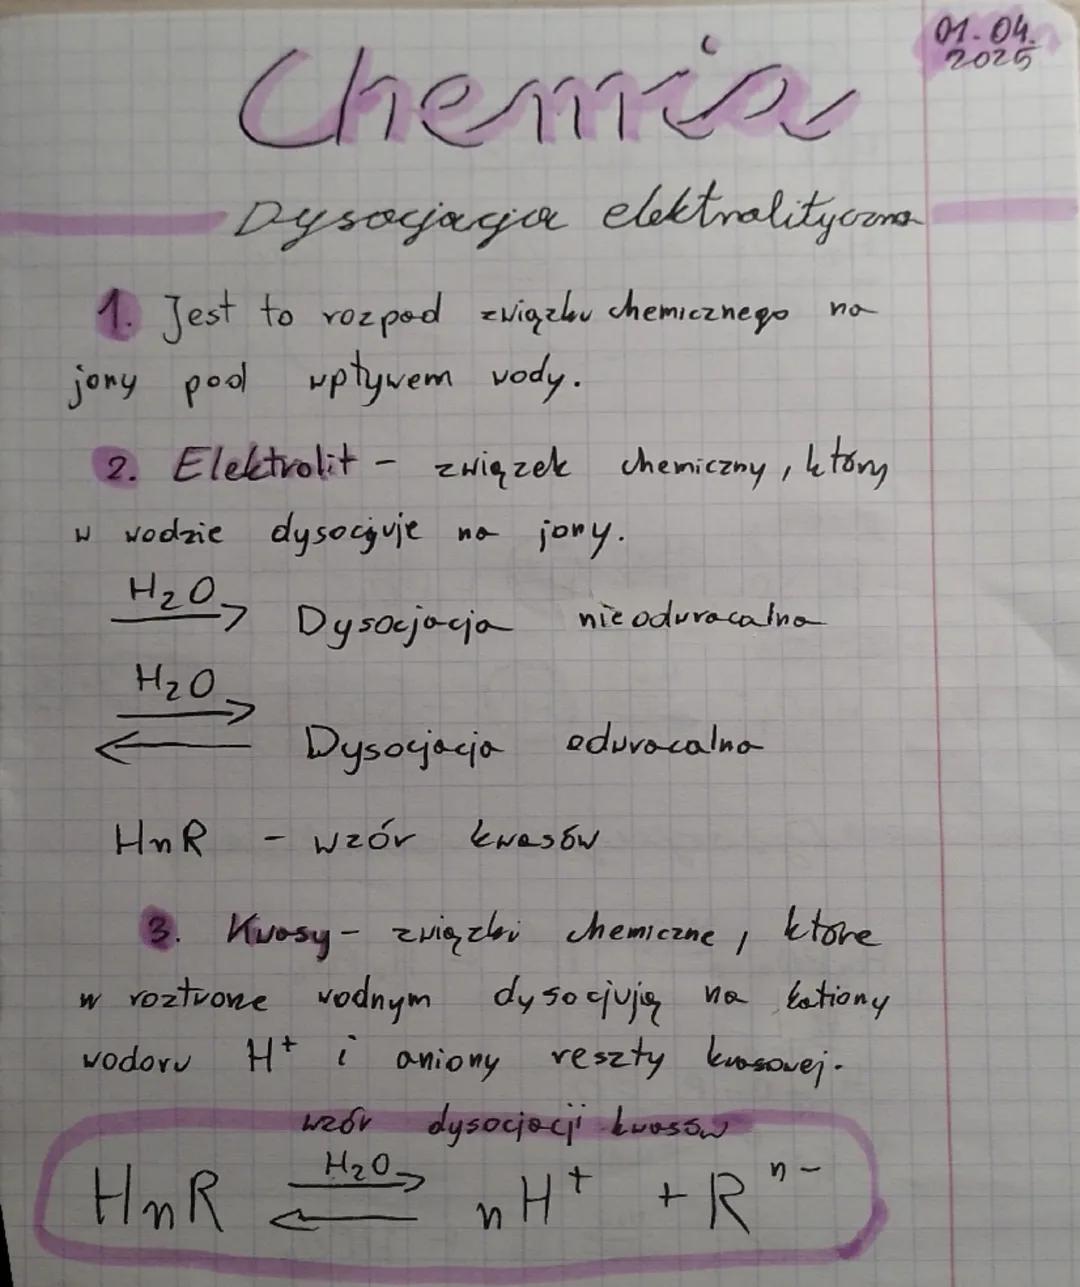 01.04.
2025
Chemia
Dysocjacja elektrolityczna
1. Jest to rozpad związku chemicznego na
jony pod wpływem wody.
2. Elektrolit - związek chemiczny, który
w wodzie dysocjuje na jony.
H₂O
→ Dysocjacja nieodwracalna
H₂O
⇄ Dysocjacja odwracalna
HnR - wzór kwasów
3. Kwasy - związki chemiczne, które
w roztworze wodnym dysocjują na kationy
wodoru H⁺ i aniony reszty kwasowej.
wzór dysocjacji kwasów
H₂O
HₙR ⇄ nH⁺ + Rⁿ⁻